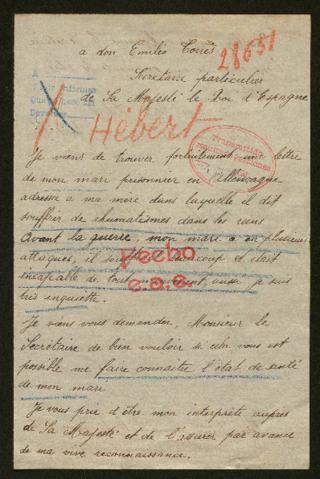 a don Emilio Torrès
28651
Secretaire particulier
de Sa Majesté le Roi d'Espagne
Informes
Hébert
Je viens de trouver fortuitement une lettre
de mon mari prisonnier en Allemagne
adressée a ma mère dans laquelle il dit
souffrir de rhumatismes dans les reins
Avant la guerre, mon mari a eu plusieurs
attaques, il coup et était
incapable de tout aussi je suis
très inquiette.
Fecho
e.a.e.
Je viens vous demander, Monsieur le
Secretaire de bien vouloir si cela vous est
possible me faire connaitre l'état de santé
de mon mari
Je vous prie d'être mon interprète auprès
de Sa Majesté et de l'assurer par avance
de ma vive reconnaissance.